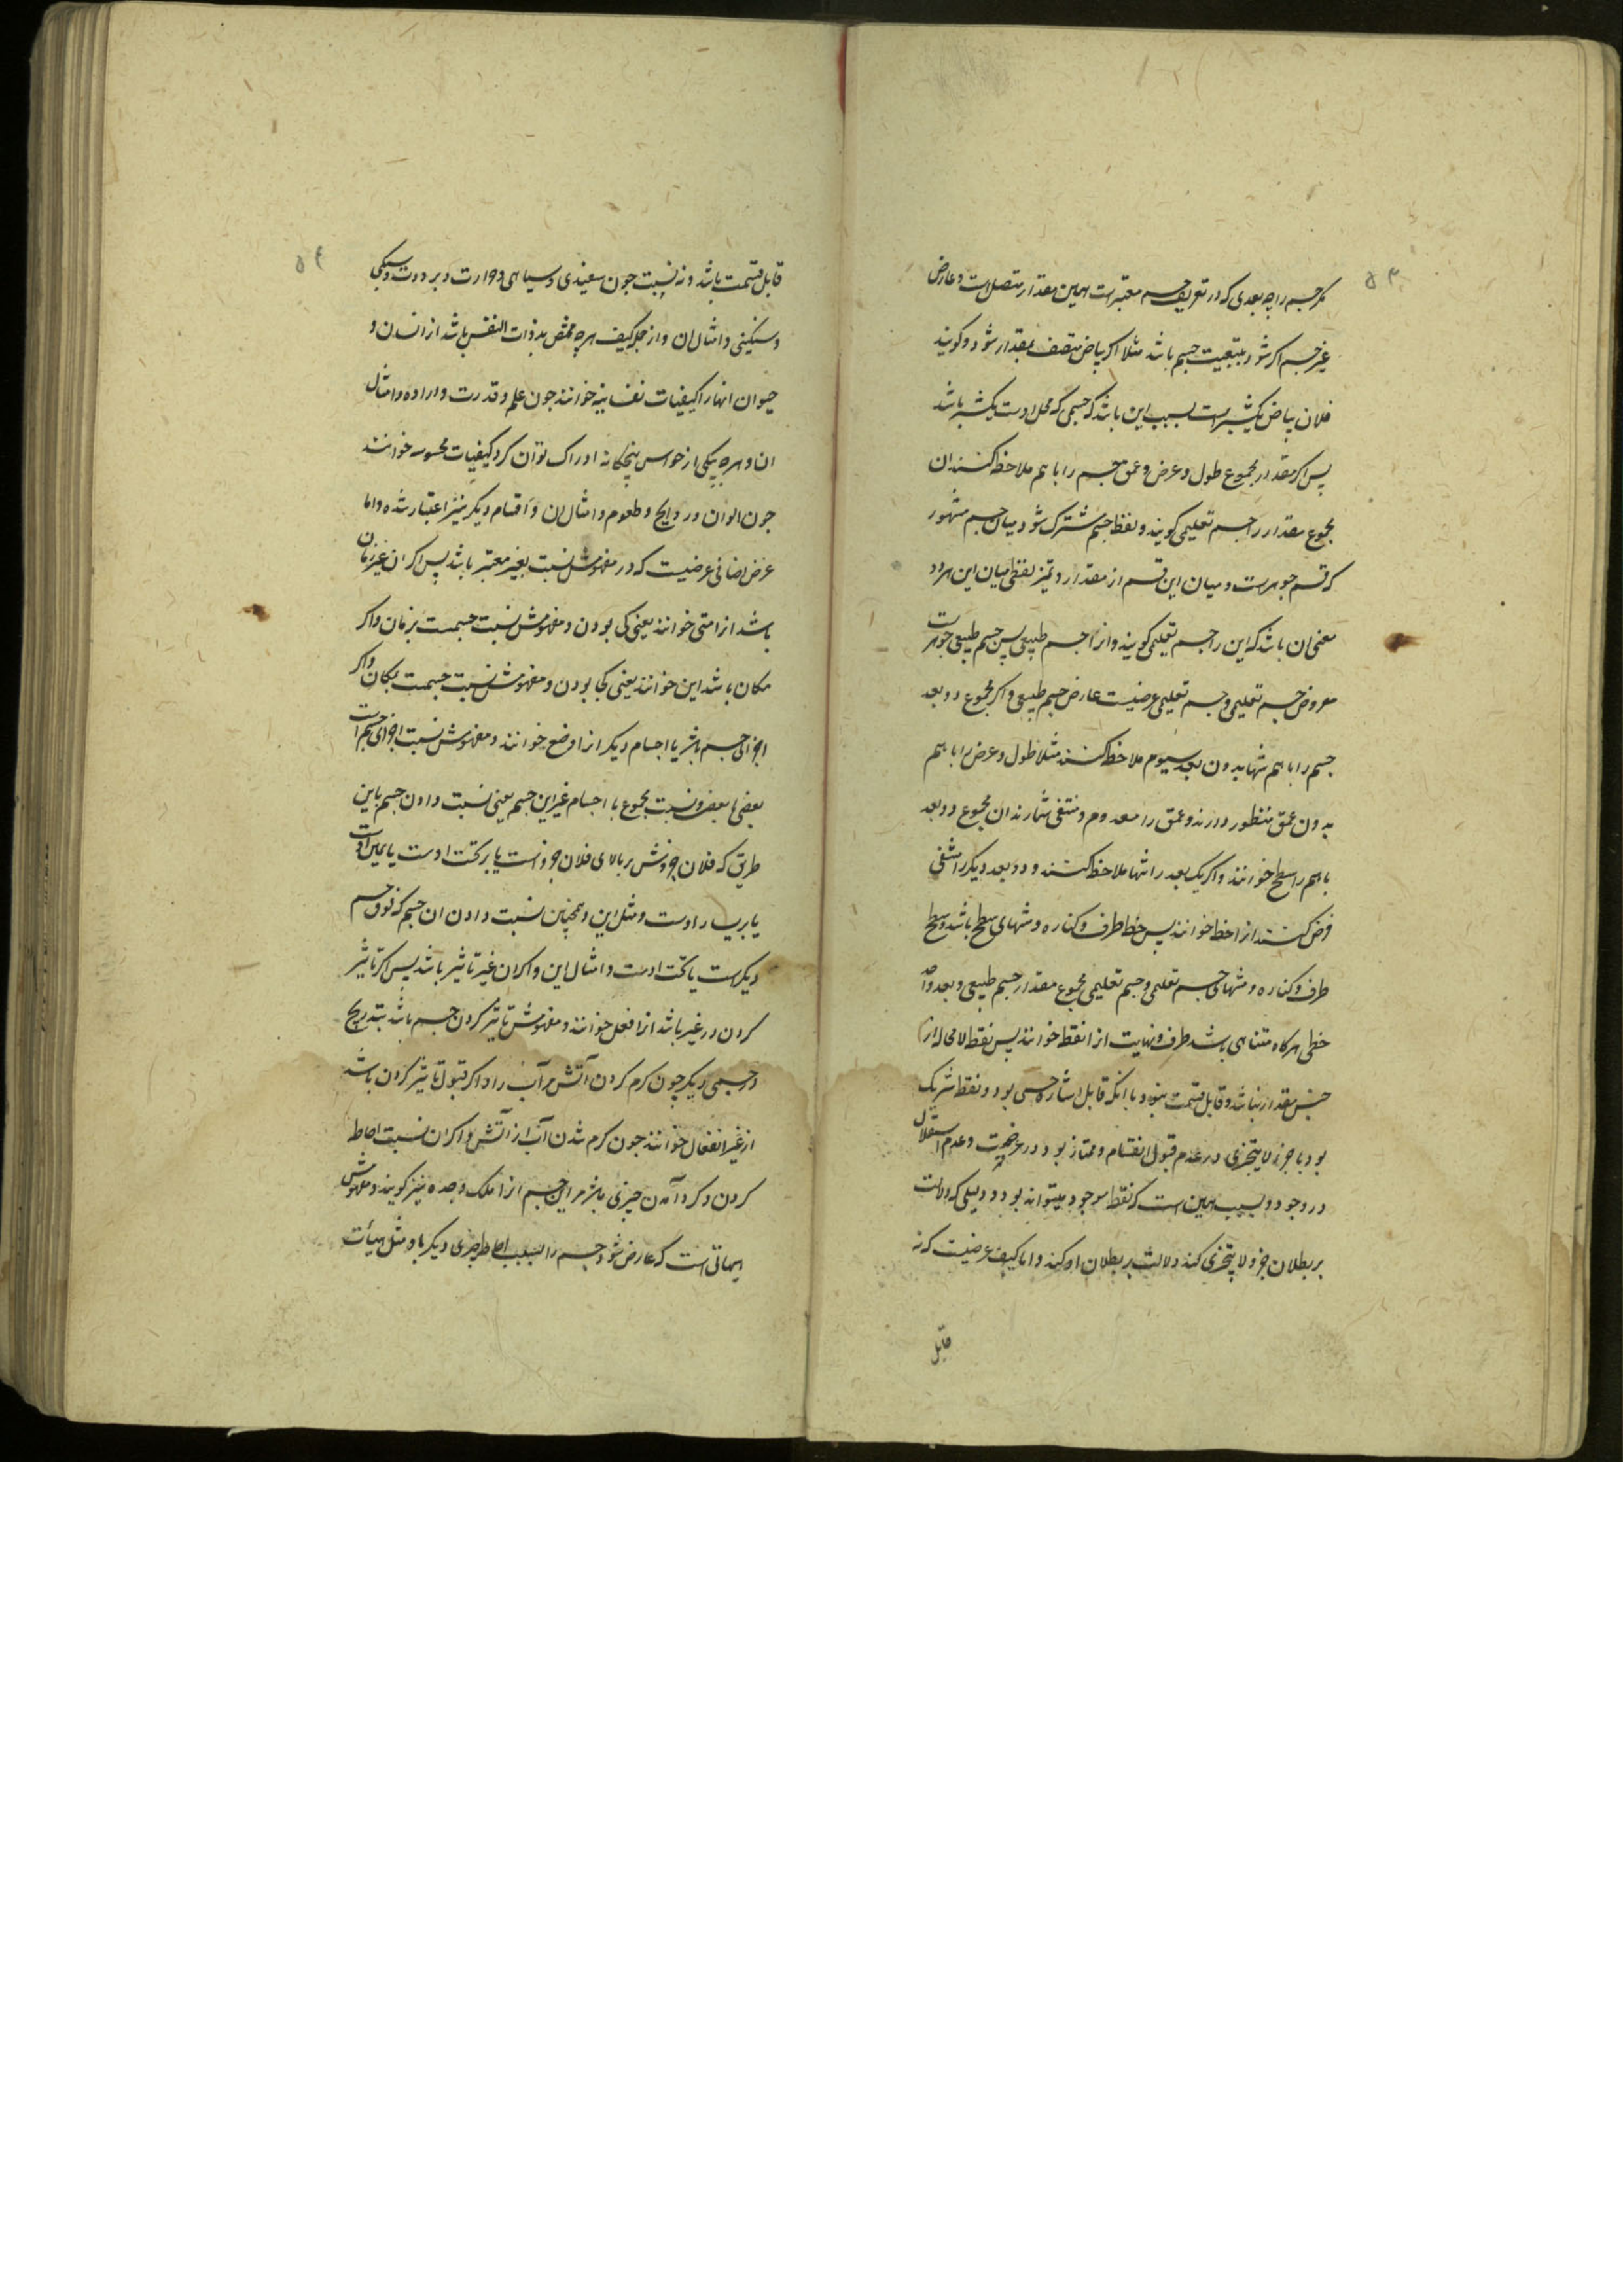 ۵۳
مگر جسم را چه بعدی که در تعریف جسم معتبرست همین مقدار متصل است و عارض
غیر جسم اگر شود بتبعیت جسم باشد مثلا اگر بیاض متصف بمقدار شود و گویند
فلان بیاض یکشبرست بسبب این باشد که جسمی که محل اوست یکشبر باشد
پس اگر مقدار مجموع طول و عرض و عمق جسم را با هم ملاحظه کنند ان
مجموع مقدار را جسم تعلیمی گویند و لفظ جسم مشترک شود میان جسم مشهور
که قسم جوهرست و میان این قسم از مقدار و تمیز لفظی میان این هر دو
معنی ان باشد که این را جسم تعلیمی گویند و انرا جسم طبیعی پس جسم طبیعی جوهرست
معروض جسم تعلیمی و جسم تعلیمی عرضیست عارض جسم طبیعی و اگر مجموع دو بعد
جسم را با هم تنها بدون بعد سیوم ملاحظه کنند مثلا طول و عرض را با هم
بدون عمق منظور دارند و عمق را معدوم و منتفی شمارند ان مجموع دو بعد
با هم را سطح خوانند و اگر یک بعد را تنها ملاحظه کنند و دو بعد دیگر را منتفی
فرض کنند انرا خط خوانند پس خط طرف و کناره و منتهای سطح باشد و سطح
طرف و کناره و منتهای جسم تعلیمی و جسم تعلیمی مجموع مقدار جسم طبیعی و بعد واحد
خطی هر گاه متناهی باشد طرف و نهایت انرا نقطه خوانند پس نقطه لا محاله از
جنس مقدار نباشد و قابل قسمت نبود با انکه قابل اشاره حسی بود و نقطه شریک
بود با جزء لا یتجزی در عدم قبول انقسام و ممتاز بود در عرضیت و عدم استقلال
در وجود و بسبب همین است که نقطه موجود میتواند بود و دلیلی که دلالت
بر بطلان جزو لا یتجزی کند دلالت بر بطلان او نکند و اما کیف عرضیست که نه
قابل
۵۴
قابل قسمت باشد و نه نسبت چون سفیدی و سیاهی و حرارت و برودت و سبکی
و سنگینی و امثال ان و از جمله کیف هر چه مختص بذوات النفس باشد از انسان و
حیوان انها را کیفیات نفسانیه خوانند چون علم و قدرت و اراده و امثال
ان و هر چه بیکی از حواس پنجگانه ادراک توان کرد کیفیات محسوسه خوانند
چون الوان و روایح و طعوم و امثال ان و اقسام دیگر نیز اعتبار شده و اما
عرض اضافی عرضیست که در مفهومش نسبت بغیر معتبر باشد پس اگر ان غیر زمان
باشد انرا متی خوانند یعنی کی بودن و مفهومش نسبت جسمست بزمان و اگر
مکان باشد این خوانند یعنی کجا بودن و مفهومش نسبت جسمست بمکان و اگر
اجزای جسم باشد یا اجسام دیگر انرا وضع خوانند و مفهومش نسبت اجزای جسم است
بعضی با بعض و نسبت مجموع با اجسام غیر این جسم یعنی نسبت دادن جسم باین
طریق که فلان جزوش بر بالای فلان جزو است یا بر تحت اوست یا بر یمین اوست
یا بر یسار اوست و مثل این و همچنین نسبت دادن ان جسم که فوق جسم
دیگرست یا تحت اوست و امثال این و اگر ان غیر تاثیر باشد پس اگر تاثیر
کردن در غیر باشد انرا فعل خوانند و مفهومش تاثیر کردن جسم باشد بتدریج
در جسمی دیگر چون گرم کردن آتش مر آب را و اگر قبول تاثیر کردن باشد
از غیر انفعال خوانند چون گرم شدن آب از آتش و اگر ان نسبت احاطه
کردن و گرد آمدن چیزی باشد مر این جسم انرا ملک و جده نیز گویند و مفهومش
هیاتی است که عارض شود جسم را بسبب احاطه چیزی دیگر باو مثل هیأت